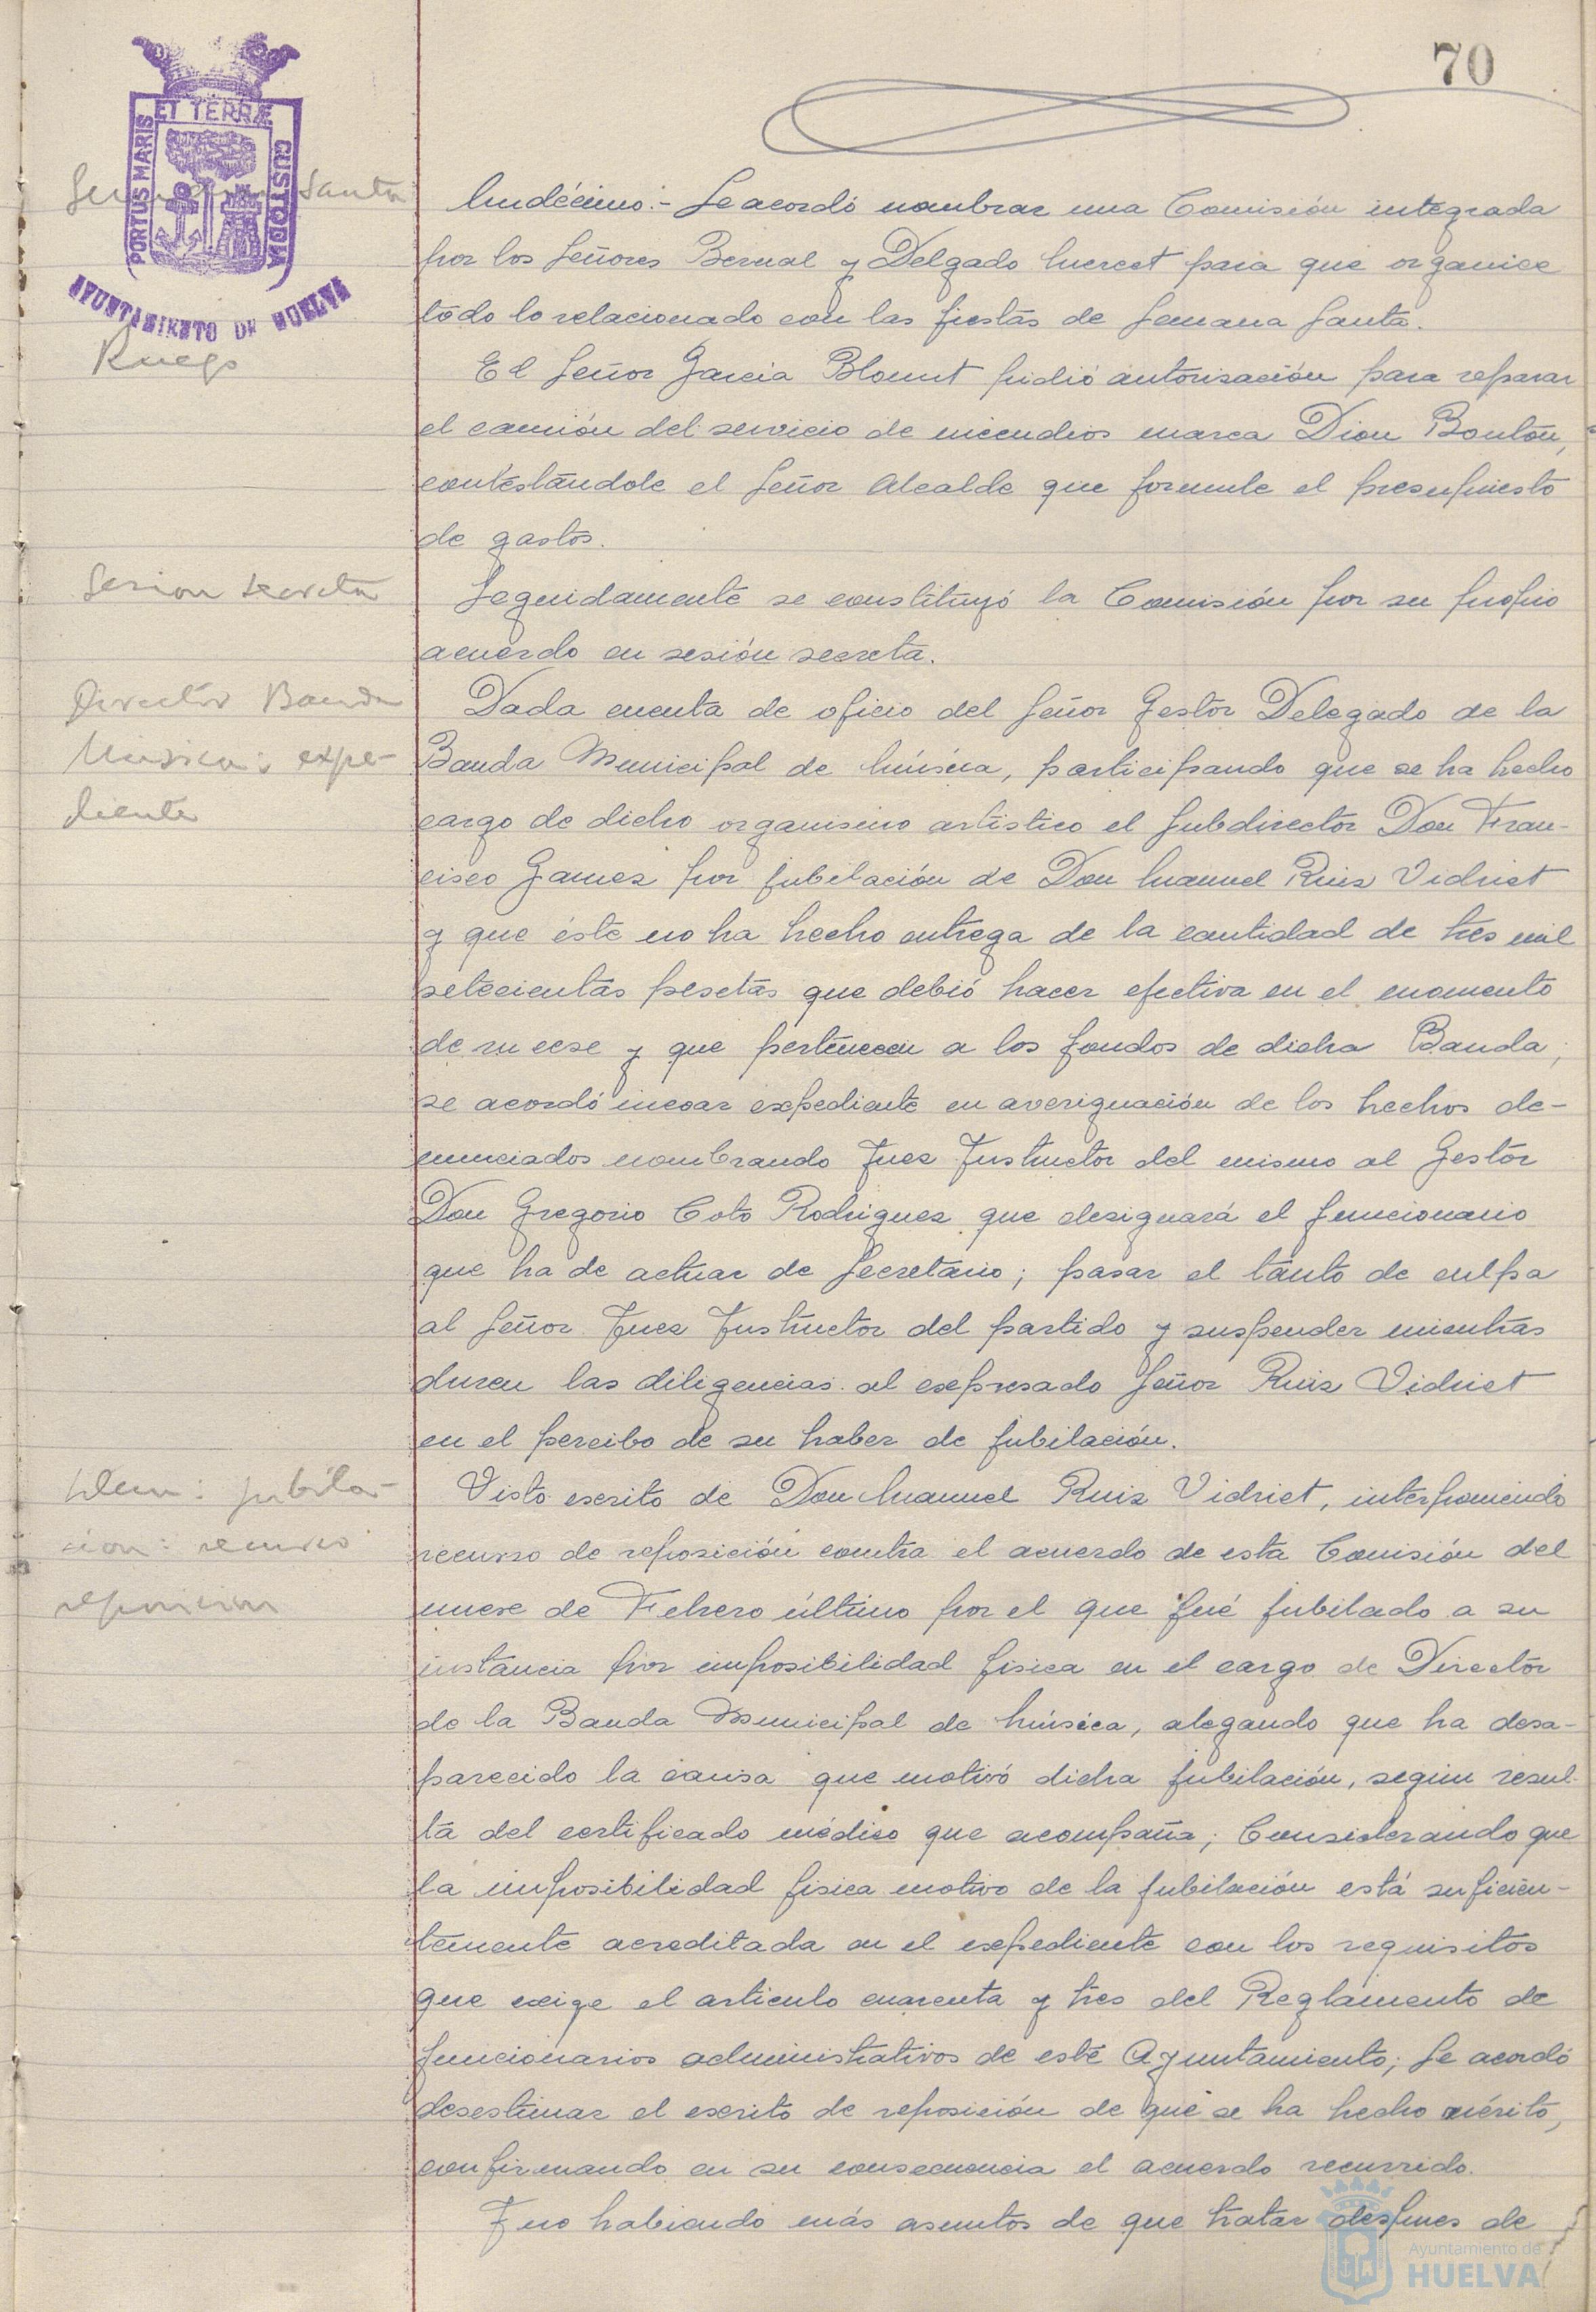 70
PORTUS MARIS ET TERRÆ CUSTODIA
AYUNTAMIENTO DE HUELVA
Santa
Undécimo:- Se acordó nombrar una Comisión integrada
por los Señores Bernal y Delgado para que organice
todo lo relacionado con las fiestas de Semana Santa.
Ruego
El Señor Garcia Blount pidió autorización para reparar
el camión del servicio de incendios marca Dion Boutón,
contestándole el Señor Alcalde que formule el presupuesto
de gastos.
Sesion secreta
Seguidamente se constituyó la Comisión por su propio
acuerdo en sesión secreta.
Director Banda
Musica: expe-
diente
Dada cuenta de oficio del Señor Gestor Delegado de la
Banda Municipal de Música, participando que se ha hecho
cargo de dicho organismo artistico el Subdirector Don Fran-
cisco Gamez por jubilación de Don Manuel Ruiz Vidriet
y que éste no ha hecho entrega de la cantidad de tres mil
setecientas pesetas que debió hacer efectiva en el momento
de su cese y que pertenecen a los fondos de dicha Banda;
se acordó incoar expediente en averiguación de los hechos de-
nunciados nombrando Juez Instructor del mismo al Gestor
Don Gregorio Coto Rodriguez que designará el funcionario
que ha de actuar de Secretario; pasar el tanto de culpa
al Señor Juez Instructor del partido y suspender mientras
duren las diligencias al expresado Señor Ruiz Vidriet
en el percibo de su haber de jubilación.
Idem: jubila-
cion: recurso
reposicion
Visto escrito de Don Manuel Ruiz Vidriet, interponiendo
recurso de reposición contra el acuerdo de esta Comisión del
once de Febrero último por el que fué jubilado a su
instancia por imposibilidad fisica en el cargo de Director
de la Banda Municipal de Música, alegando que ha desa-
parecido la causa que motivó dicha jubilación, según resul-
ta del certificado médico que acompaña; Considerando que
la imposibilidad fisica motivo de la jubilación está suficien-
temente acreditada en el expediente con los requisitos
que exige el articulo cuarenta y tres del Reglamento de
funcionarios administrativos de este Ayuntamiento; Se acordó
desestimar el escrito de reposición de que se ha hecho mérito,
confirmando en su consecuencia el acuerdo recurrido.
Y no habiendo más asuntos de que tratar despues de
Ayuntamiento de
HUELVA